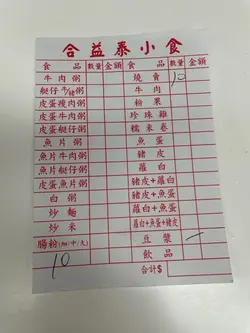 合益泰小食
食品 數量 金額 食品 數量 金額
牛肉粥 燒賣 10
艇仔牛/豬粥 牛肉
皮蛋瘦肉粥 粉果
皮蛋牛肉粥 珍珠雞
皮蛋艇仔粥 糯米卷
魚片粥 魚蛋
魚片牛肉粥 豬皮
魚片艇仔粥 蘿白
皮蛋魚片粥 豬皮+蘿白
白粥 豬皮+魚蛋
炒麵 蘿白+魚蛋
炒米 蘿白+魚蛋+豬皮
腸粉(細/中/大) 豆漿 一
10 飲品
合計$